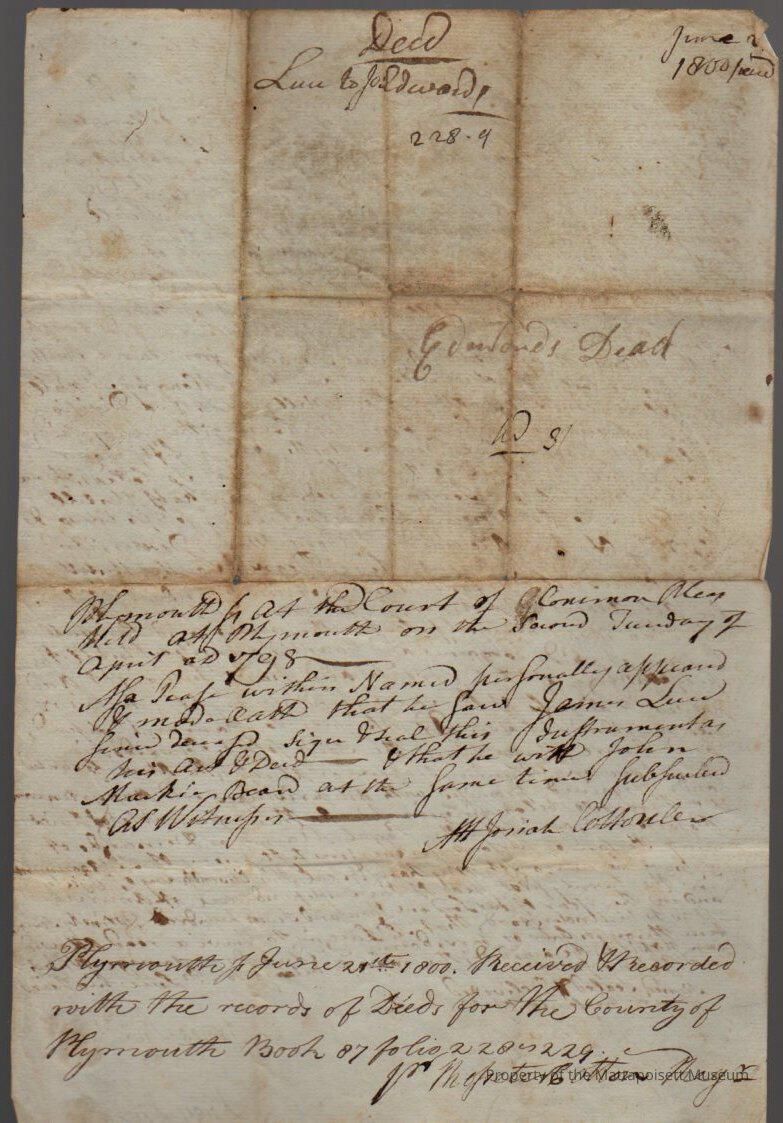 Deed
Luce to Jos Edwards
228-9
June 2
1800
Edwards Dead
81
Plymouth ss At the Court of Common Pleas
Held at Plymouth on the Second Tuesday of
April ad 1798
Asa Pease within Named personally appeared
& made oath that he saw James Luce
since deceased sign & seal this Instrument as
his Act & Deed & that he with John
Mackie Decd at the same time subscribed
as Witnesses
Att Josiah Cotton Cler
Plymouth ss June 21st 1800. Received & Recorded
with the records of Deeds for the County of
Plymouth Book 87 folio 228 & 229.
pr Rossiter Cotton Regr
Property of the Mattapoisett Museum